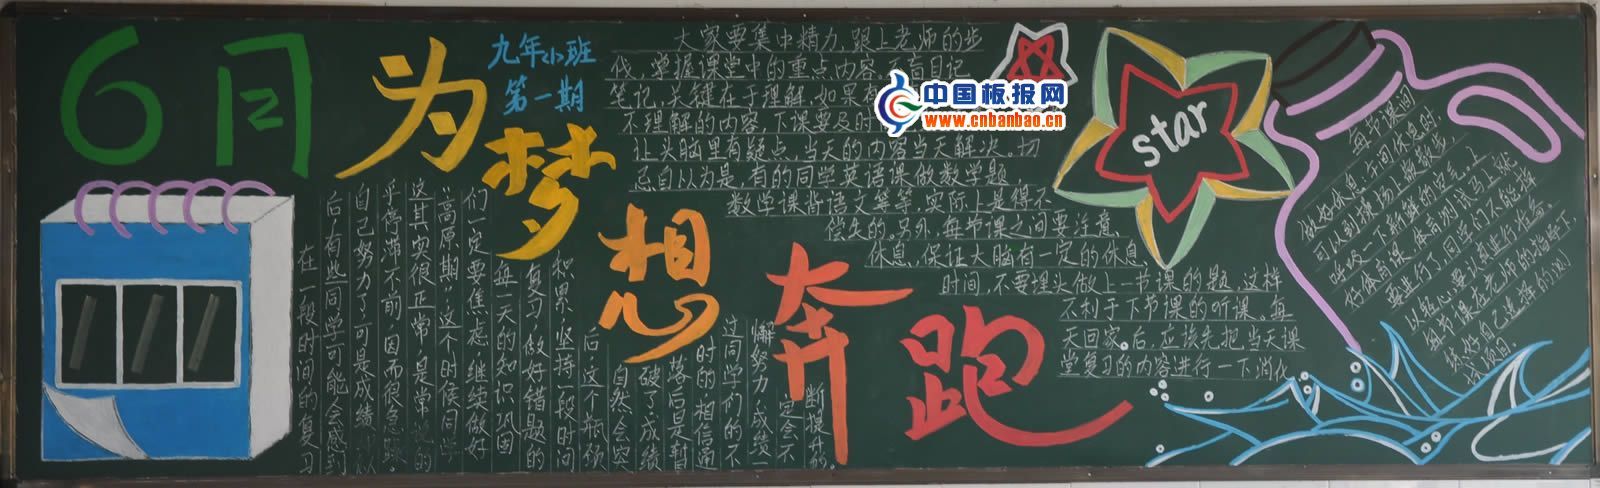 6月
九年小班
第一期
为梦想奔跑
大家要集中精力,跟上老师的步
伐,掌握课堂中的重点内容。不盲目记
笔记,关键在于理解,如果有
不理解的内容,下课要及时
让头脑里有疑点,当天的内容当天解决。切
忌自以为是,有的同学英语课做数学题
数学课背语文等等,实际上是得不
偿失的。另外,每节课之间要注意
休息,保证大脑有一定的休息
时间,不要埋头做上一节课的题,这样
不利于下节课的听课。每
天回家后,应该先把当天课
堂复习的内容进行一下消化
中国板报网
www.cnbanbao.cn
star
在一段时间的复习
后,有些同学可能会感到
自己努力了,可是成绩
乎停滞不前,因而很急躁。
这其实很正常,是常说的
“高原期”,这个时候同学
们一定要焦虑,继续做好
每一天的知识巩固
复习,做好错题的
积累,坚持一段时间
后,这个瓶颈
自然会突
破了,成绩
落后是暂
时的,相信通
过同学们的不
懈努力,成绩一
定会不
断提升的。
每节课间
做好休息,午间休息时,
可以到操场上散散步
呼吸一下新鲜的空气。上
好体育课,体育测试马上就
要进行了,同学们不能掉
以轻心,要认真进行准备。
每节课在老师的指导下,
练好自己选择的测
试项目。